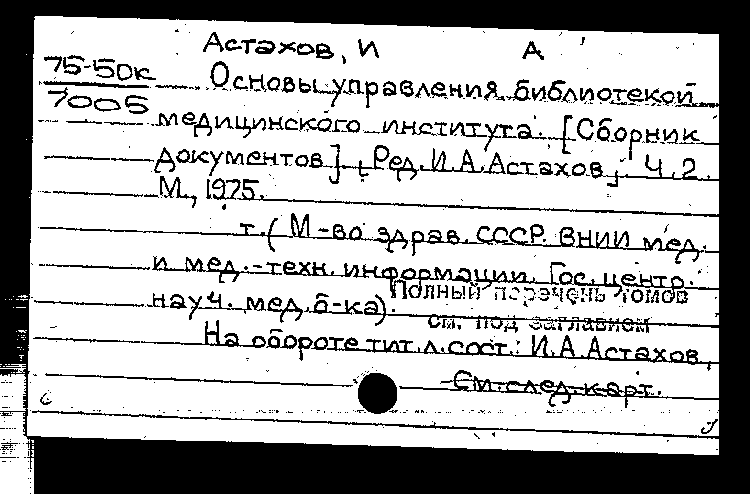 Астахов, И А
75-50к Основы управления библиотекой
7005 медицинского института. [Сборник
документов]. [Ред. И.А.Астахов]. Ч.2.
М., 1975.
т. (М-во здрав. СССР. ВНИИ мед.
и мед.-техн. информации. Гос. центр.
науч. мед. б-ка).
Полный перечень томов
см. под заглавием
На обороте тит.л.сост.: И.А.Астахов,
См.след.карт.